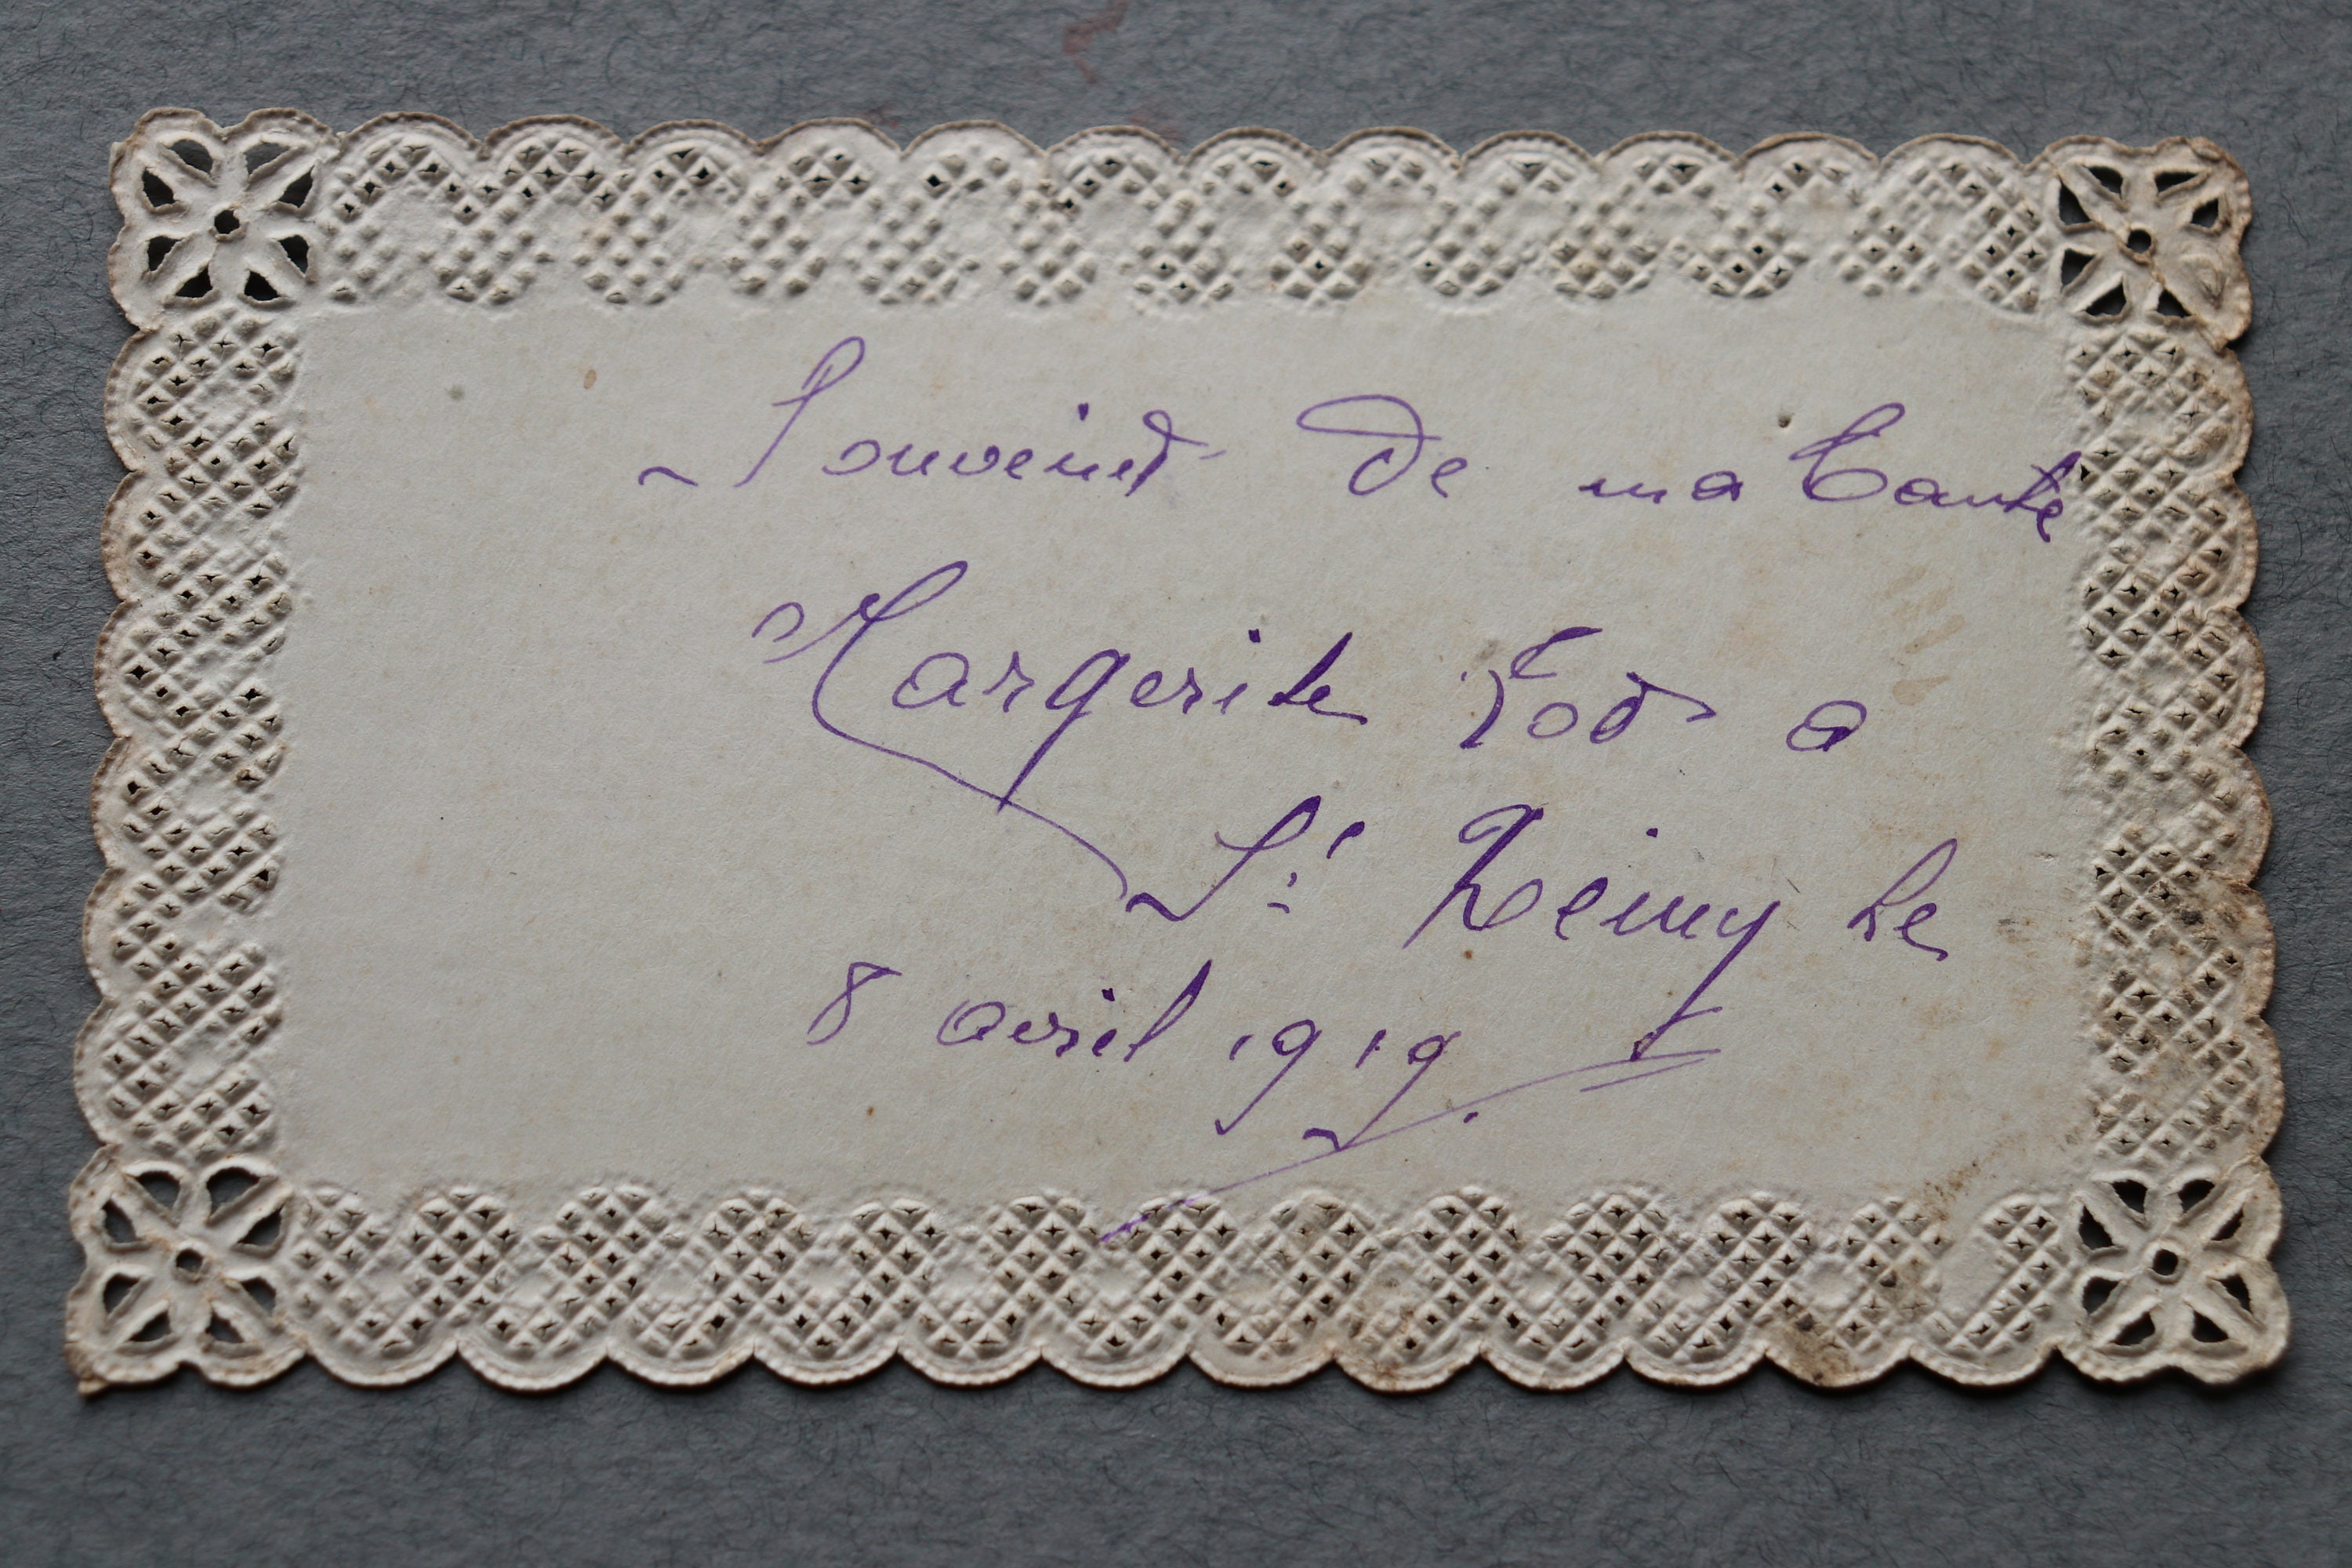 Souvenir de ma Tante
Margerite a
St Remy le
8 avril 1919.